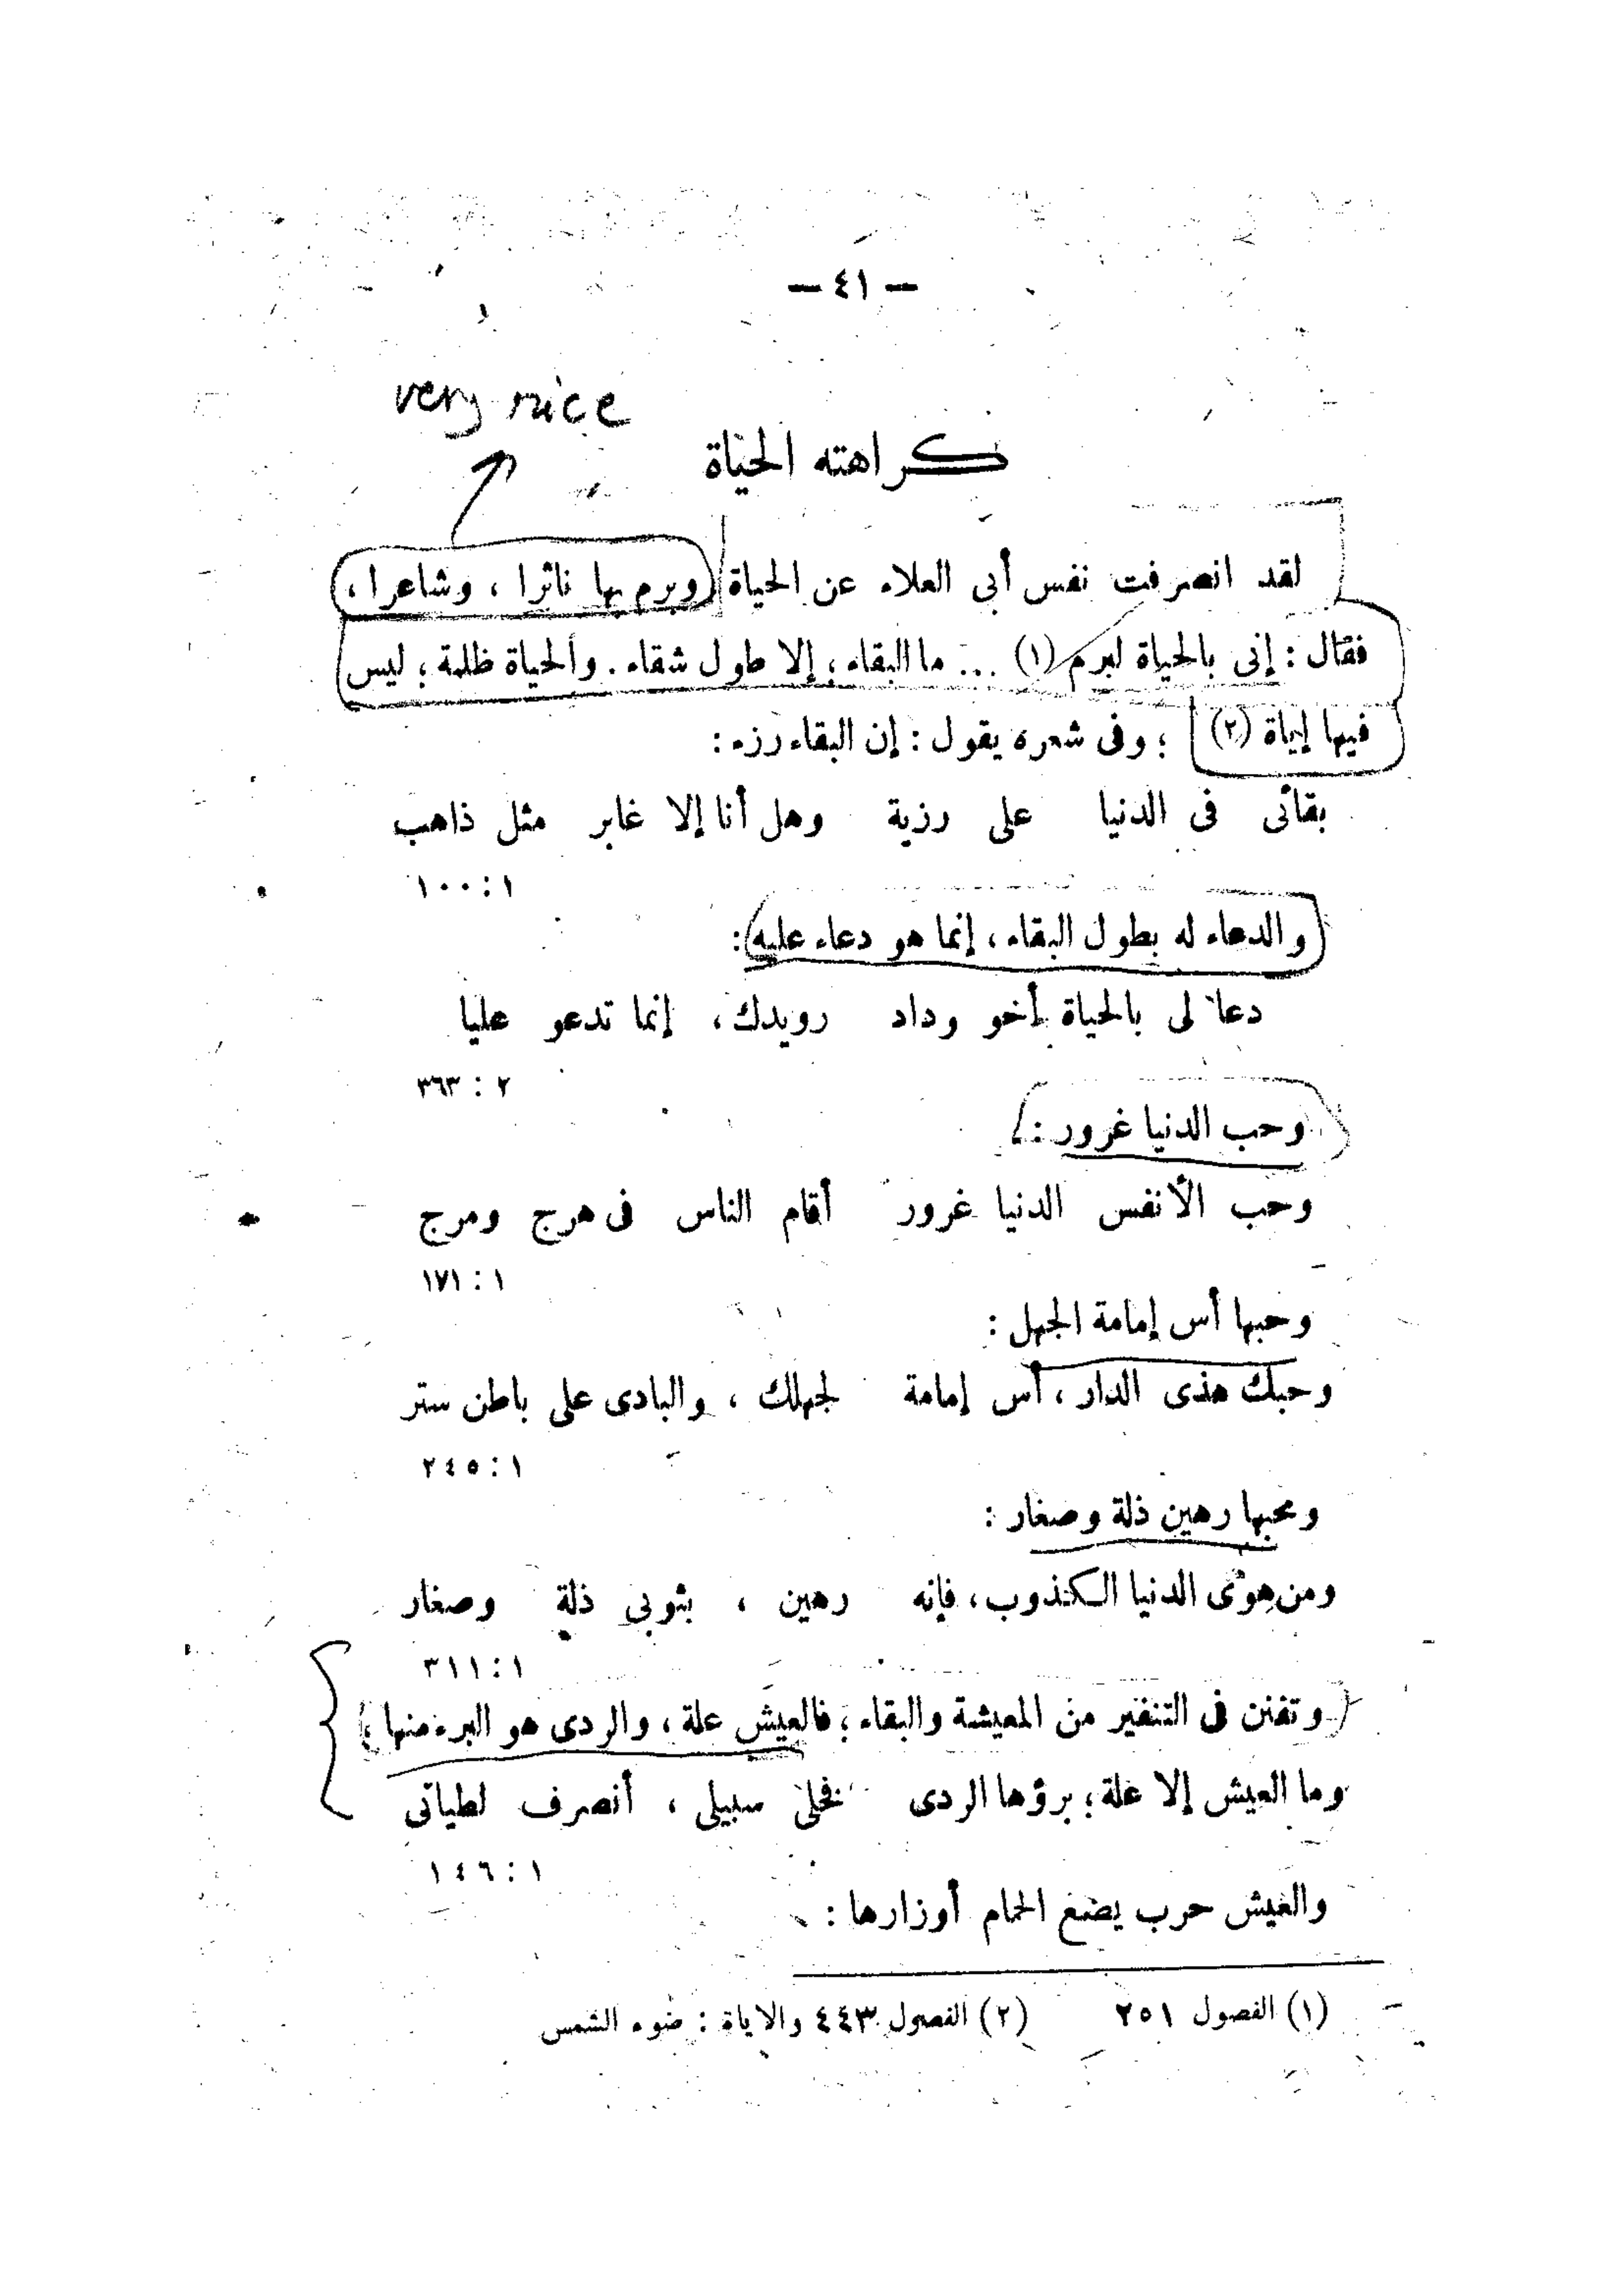 — ٤١ —
very nice
كراهته الحياة
لقد انصرفت نفس أبى العلاء عن الحياة وبرم بها ناثرا ، وشاعرا ،
فقال : إنى بالحياة لبرم (١) ... ما البقاء ؛ إلا طول شقاء . والحياة ظلمة ؛ ليس
فيها إياة (٢) ؛ وفى شعره يقول : إن البقاء رزء :
بقائى فى الدنيا على رزية وهل أنا إلا غابر مثل ذاهب
١ : ١٠٠
والدعاء له بطول البقاء ، إنما هو دعاء عليه :
دعا لى بالحياة أخو وداد رويدك ، إنما تدعو عليا
٢ : ٣٦٣
وحب الدنيا غرور :
وحب الأنفس الدنيا غرور أقام الناس فى هرج ومرج
١ : ١٧١
وحبها أس إمامة الجهل :
وحبك هذى الدار ، أس إمامة لجهلك ، والبادى على باطن ستر
١ : ٢٤٥
ومحبها رهين ذلة وصغار :
ومن هوى الدنيا الكذوب ، فإنه رهين ، بثوبى ذلة وصغار
١ : ٣١١
وتفنن فى التنفير من المعيشة والبقاء ؛ فالعيش علة ، والردى هو البرء منها ؛
وما العيش إلا علة ؛ برؤها الردى فخلى سبيلى ، أنصرف لطياتى
١ : ١٤٦
والعيش حرب يضع الحمام أوزارها :
(١) الفصول ٢٥١ (٢) الفصول ٤٤٣ والاياة : ضوء الشمس